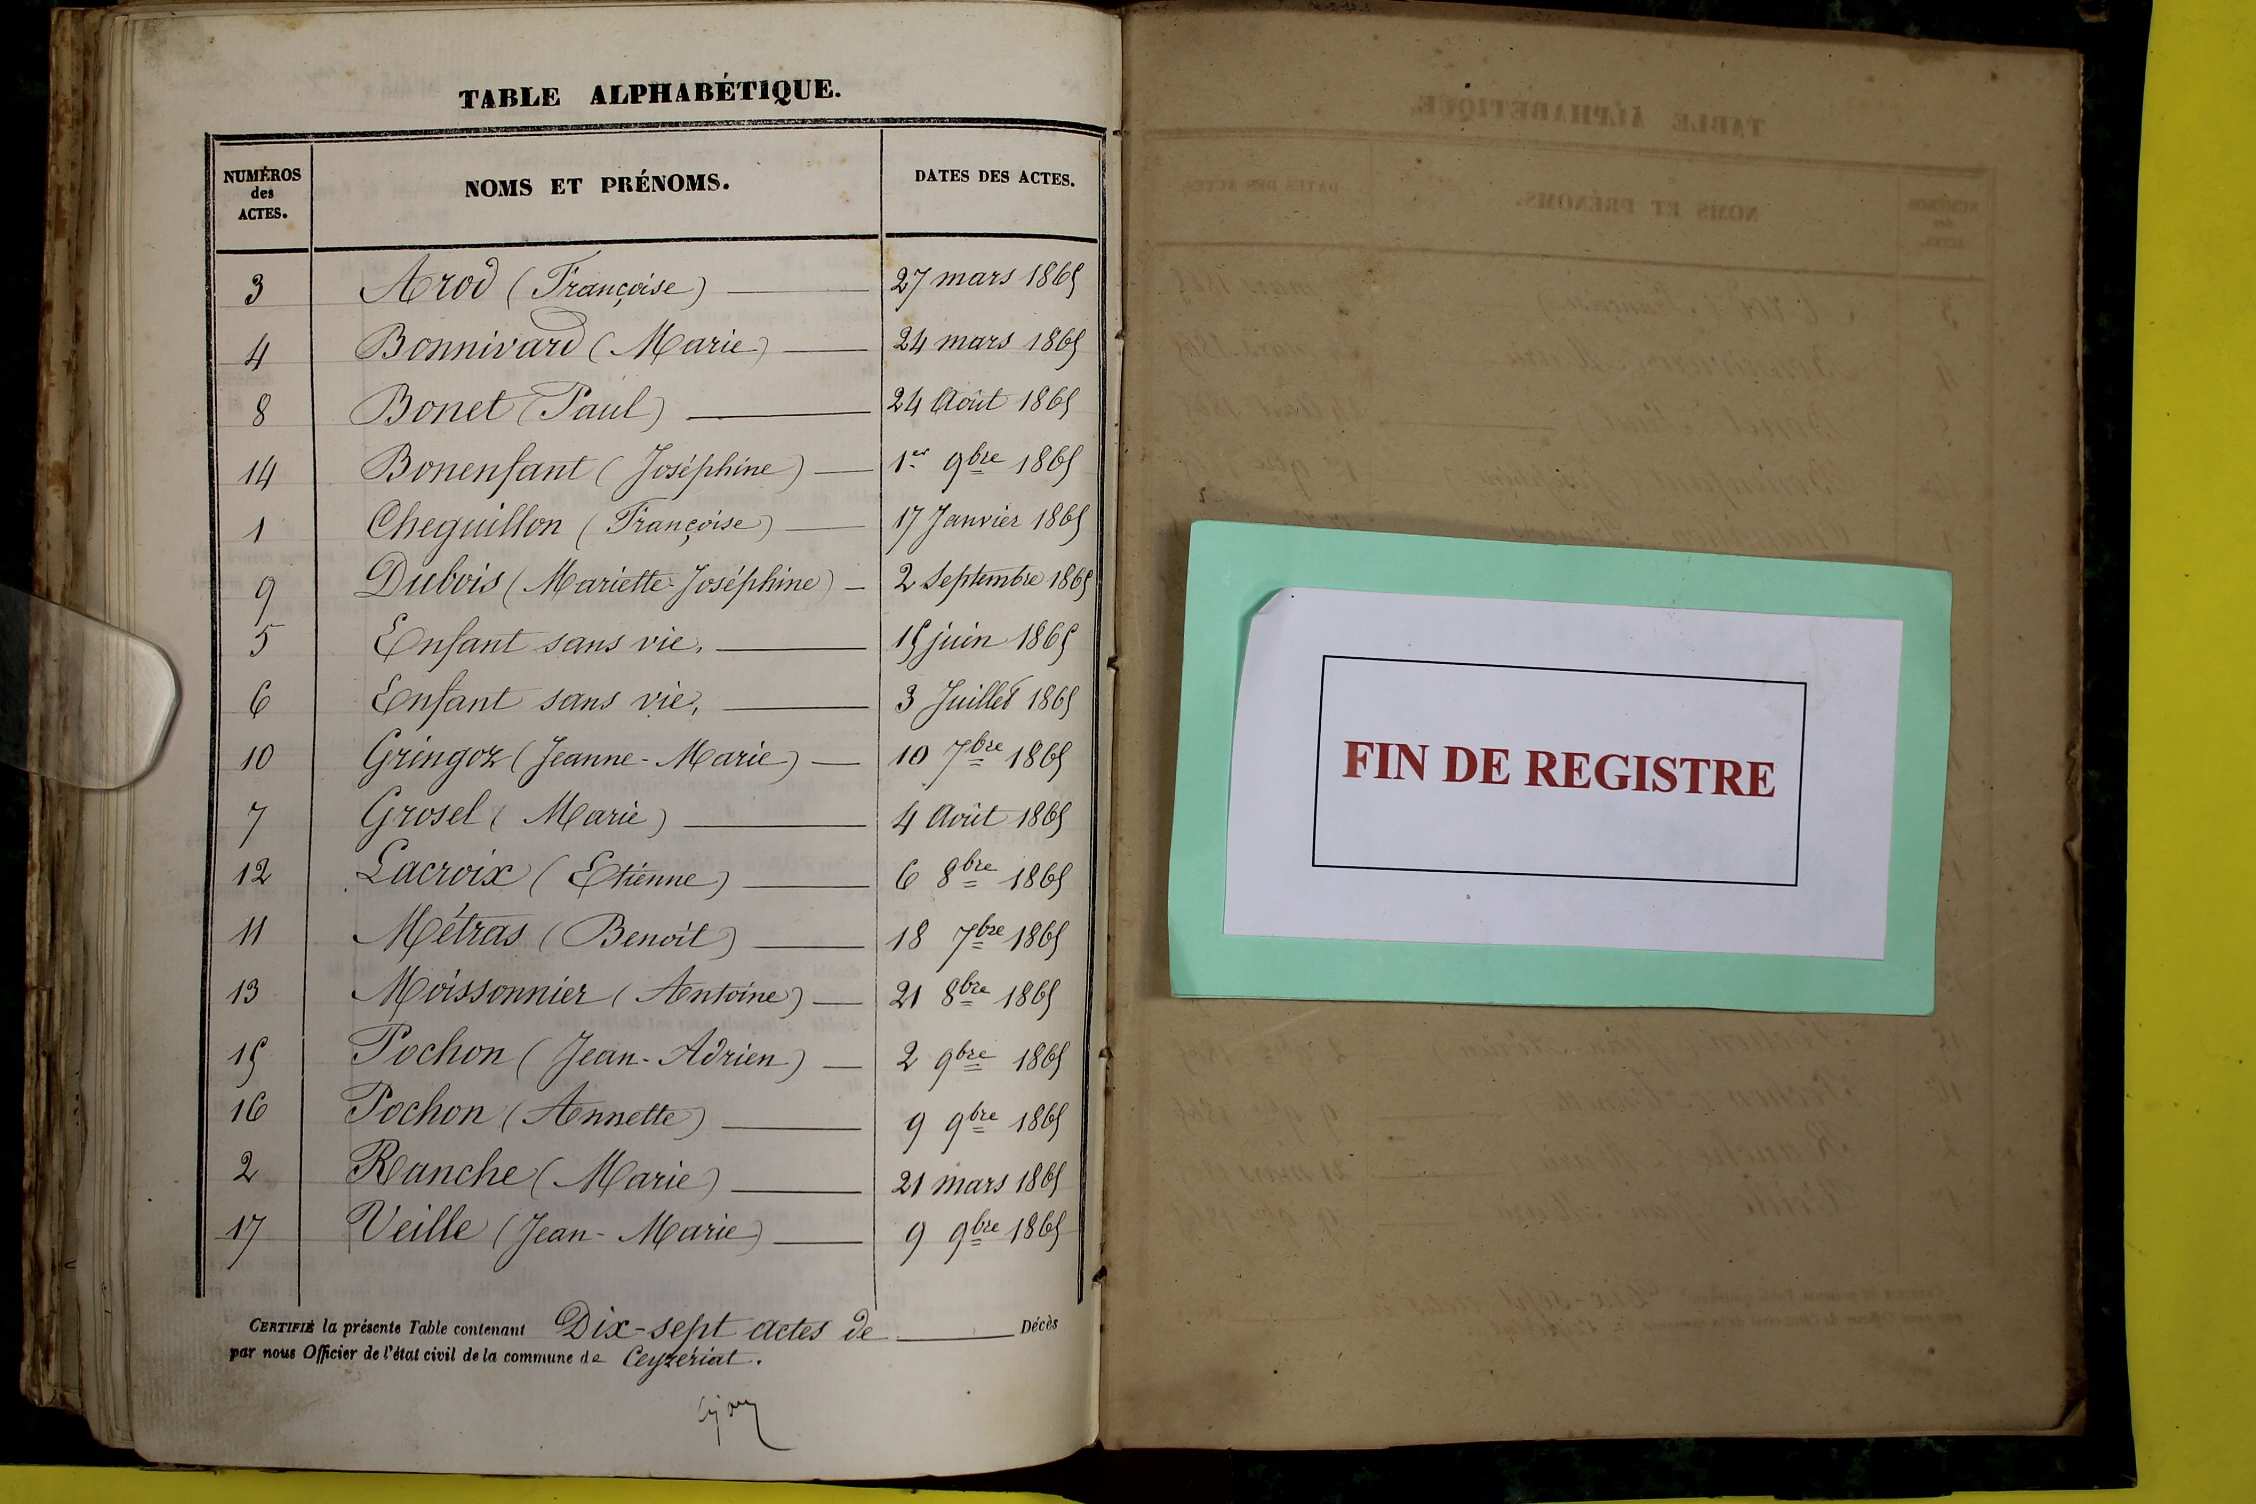 TABLE ALPHABÉTIQUE.
NUMÉROS des ACTES. NOMS ET PRÉNOMS. DATES DES ACTES.
3 Arod (Françoise) 27 mars 1865
4 Bonnivard (Marie) 24 mars 1865
8 Bonet (Paul) 24 Août 1865
14 Bonenfant (Joséphine) 1er 9bre 1865
1 Cheguillon (Françoise) 17 Janvier 1865
9 Dubois (Mariette-Joséphine) 2 Septembre 1865
5 Enfant sans vie. 15 juin 1865
6 Enfant sans vie. 3 Juillet 1865
10 Gringoz (Jeanne-Marie) 10 7bre 1865
7 Grosel (Marie) 4 Août 1865
12 Lacroix (Etienne) 6 8bre 1865
11 Métras (Benoît) 18 7bre 1865
13 Moissonnier (Antoine) 21 8bre 1865
15 Pochon (Jean-Adrien) 2 9bre 1865
16 Pochon (Annette) 9 9bre 1865
2 Ranche (Marie) 21 mars 1865
17 Veille (Jean-Marie) 9 9bre 1865
CERTIFIÉ la présente Table contenant Dix-sept actes de Décès
par nous Officier de l'état civil de la commune de Ceyzériat.
FIN DE REGISTRE